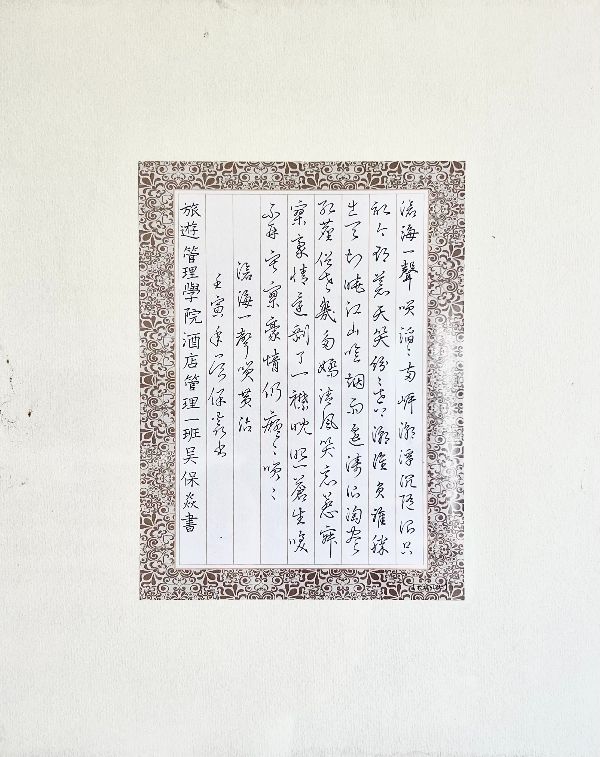 滄海一聲咲滔〻兩岸潮浮沉隨浪只
記今朝蒼天笑紛〻世上潮誰負誰勝
出天知曉江山咲烟雨遙濤浪淘盡
紅塵俗世幾多嬌清風笑惹寂
寥豪情還剩了一襟晚照蒼生咲
不再寂寥豪情仍癡〻咲〻
滄海一聲咲黃霑
壬寅年吳保焱書
旅遊管理學院酒店管理一班吳保焱書